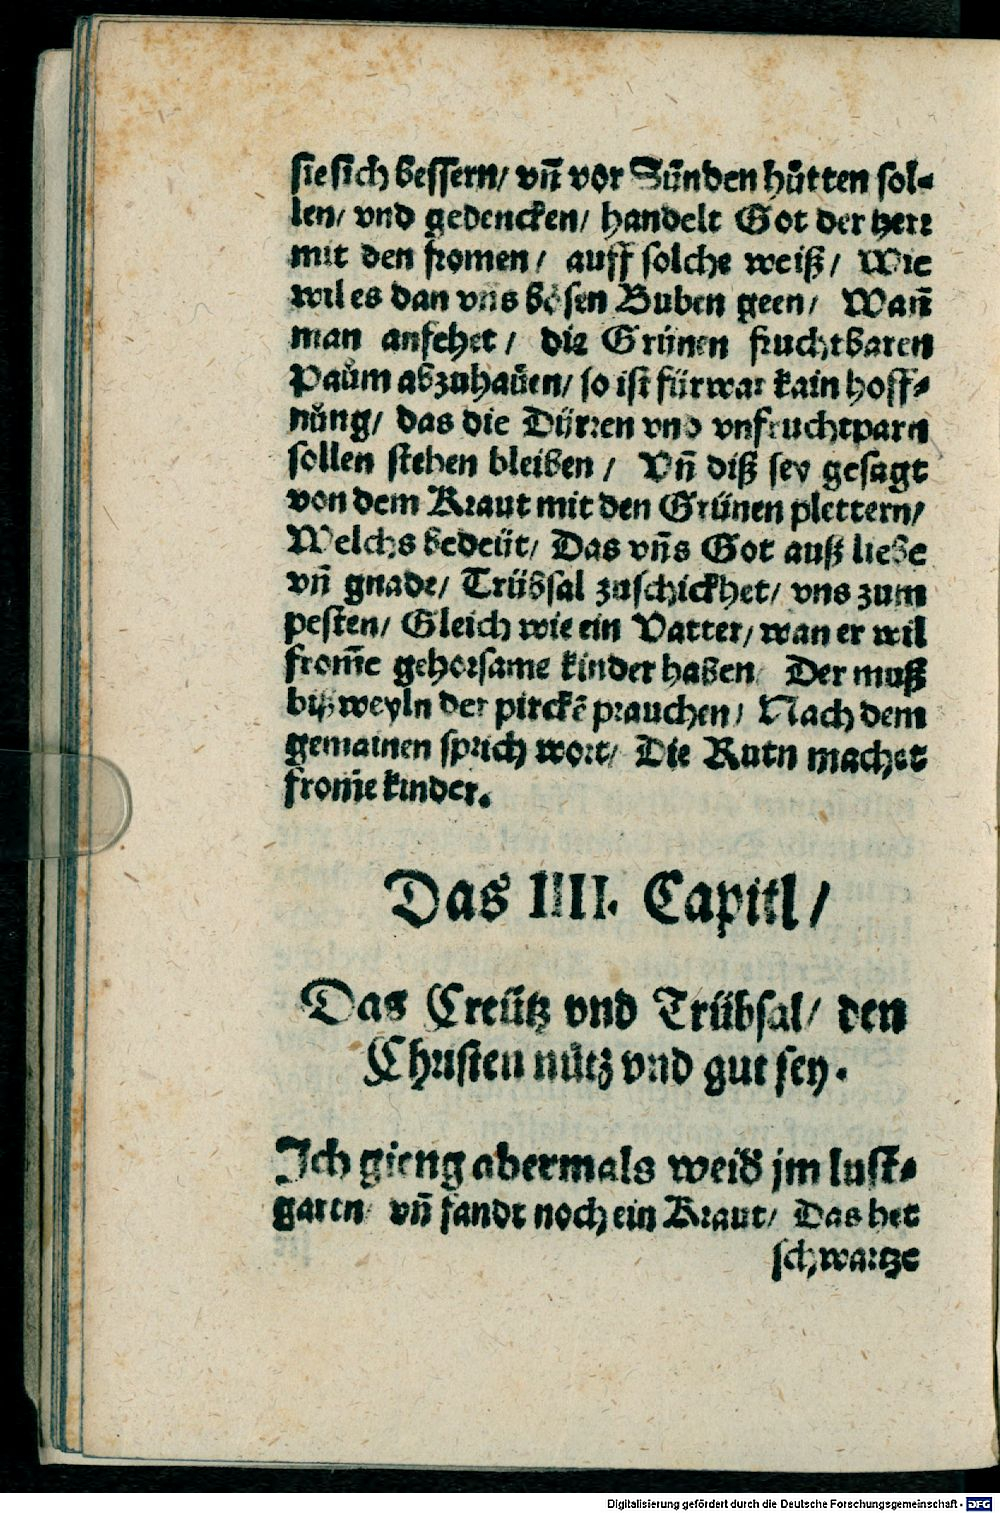 sie sich bessern/ vñ vor Sünden hütten sol-
len/ vnd gedencken/ handelt Got der herr
mit den fromen/ auff solche weiß/ Wie
wil es dan vns bösen Buben geen/ Wañ
man anfehet/ die Grünen fruchtbaren
Paům abzuhaůen/ so ist fürwar kain hoff-
nůng/ das die Dürren vnd vnfruchtparn
sollen stehen bleiben/ Vñ diß sey gesagt
von dem Kraut mit den Grünen plettern/
Welchs bedeüt/ Das vñs Got auß liebe
vñ gnade/ Trübsal zuschickhet/ vns zum
pesten/ Gleich wie ein Vatter/ wan er wil
from̃e gehorsame kinder haben/ Der muß
bißweyln der pirckẽ prauchen/ Nach dem
gemainen sprich wort/ Die Rutn machet
from̃e kinder.
Das IIII. Capitl/
Das Creütz vnd Trübsal/ den
Christen nütz vnd gut sey.
Ich gieng abermals weid jm lust-
garten/ vñ fandt noch ein Kraut/ Das het
schwartze
Digitalisierung gefördert durch die Deutsche Forschungsgemeinschaft - DFG